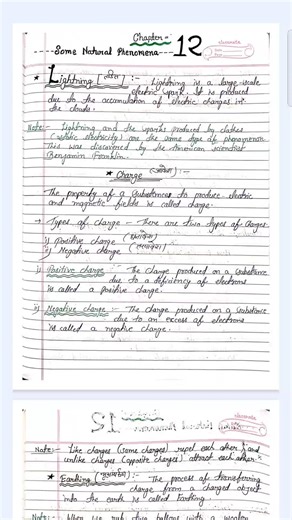 Chapter - 12
Some Natural Phenomena
classmate
* Lightning [तड़ित] :- Lightning is a large-scale
electric spark. It is produced
due to the accumulation of electric charges in
the clouds.
Note:- Lightning and the sparks produced by clothes
(static electricity) are the same type of phenomenon.
This was discovered by the American scientist
Benjamin Franklin.
* Charge (आवेश) :-
The property of a substances to produce electric
and magnetic fields is called charge.
→ Types of charge - There are two types of charges.
i) Positive charge (धनावेश)
ii) Negative charge (ऋणावेश)
i) Positive charge :- The charge produced on a substance
due to a deficiency of electrons
is called a positive charge.
ii) Negative charge :- The charge produced on a substance
due to an excess of electrons
is called a negative charge.
classmate
Note:- Like charges (same charges) repel each other and
unlike charges (opposite charges) attract each other.
* Earthing (भूसम्पर्कण) :- The process of transferring
charge from a charged object
into the earth is called Earthing.
Note:- When we rub two balloons with a woolen